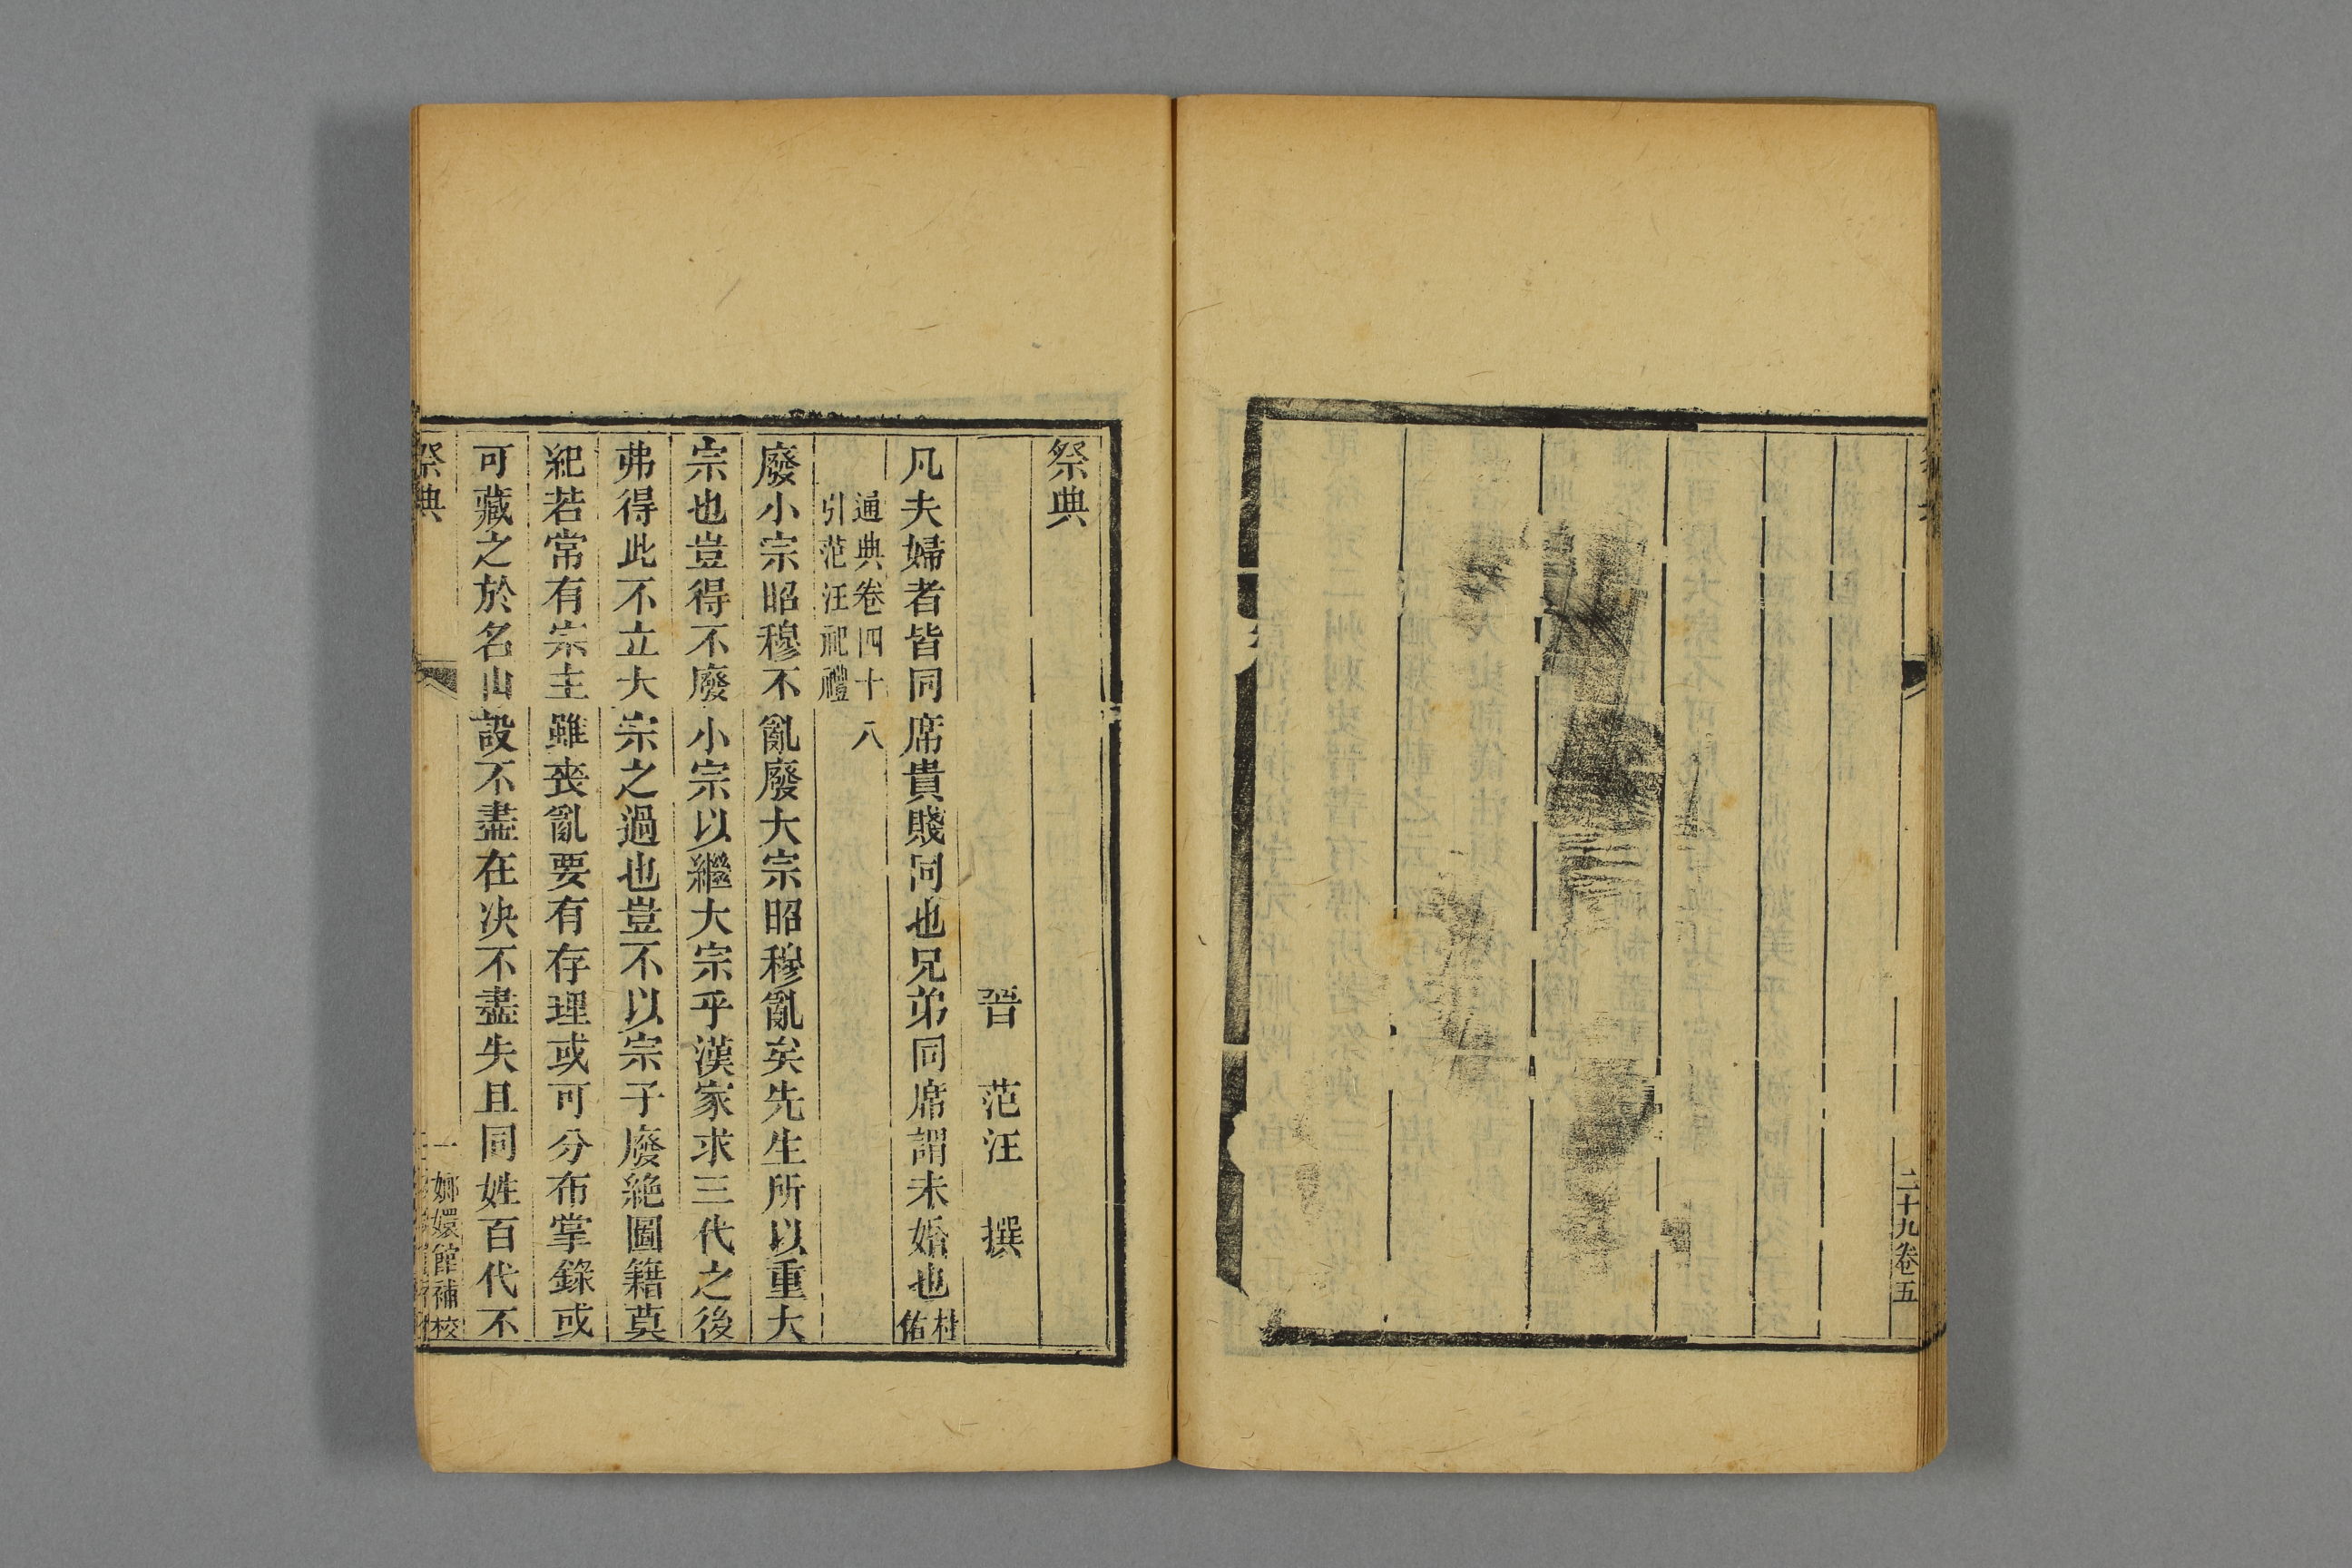 二十九卷五
祭典
晉 范汪 撰
凡夫婦者皆同席貴賤同也兄弟同席謂未婚也杜佑
通典卷四十八
引范汪祀禮
廢小宗昭穆不亂廢大宗昭穆亂矣先生所以重大
宗也豈得不廢小宗以繼大宗乎漢家求三代之後
弗得此不立大宗之過也豈不以宗子廢絶圖籍莫
紀若常有宗主雖喪亂要有存理或可分布掌錄或
可藏之於名山設不盡在决不盡失且同姓百代不
祭典
一
嫏嬛館補校